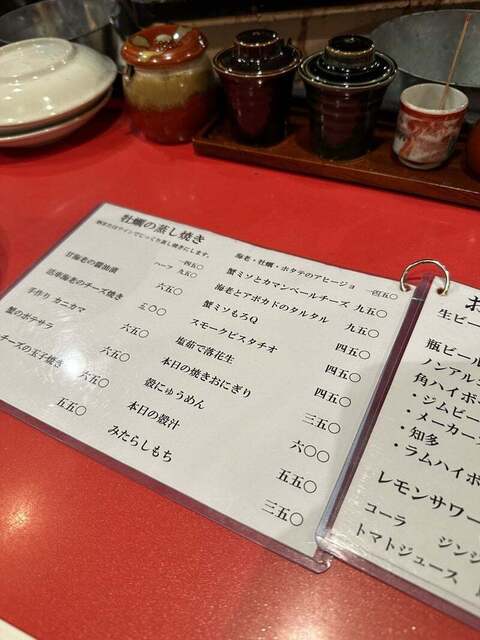 牡蠣の蒸し焼き
酒またはワインでじっくり蒸し焼きにします。
一四五〇
ハーフ 九五〇
甘海老の醤油漬
六五〇
活車海老のチーズ焼き
三〇〇
手作り カニカマ
六五〇
蟹のポテサラ
六五〇
チーズの玉子焼き
五五〇
海老・牡蠣・ホタテのアヒージョ
一四五〇
蟹ミソとカマンベールチーズ
九五〇
海老とアボカドのタルタル
九五〇
蟹ミソもろQ
四五〇
スモークピスタチオ
四五〇
塩茹で落花生
四五〇
本日の焼きおにぎり
三五〇
殻にゅうめん
六〇〇
本日の殻汁
五五〇
みたらしもち
三五〇
お
生ビー
瓶ビール
ノンアル
角ハイボ
・ジムビー
・メーカー
・知多
・ラムハイボ
レモンサワー
コーラ ジンジ
トマトジュース